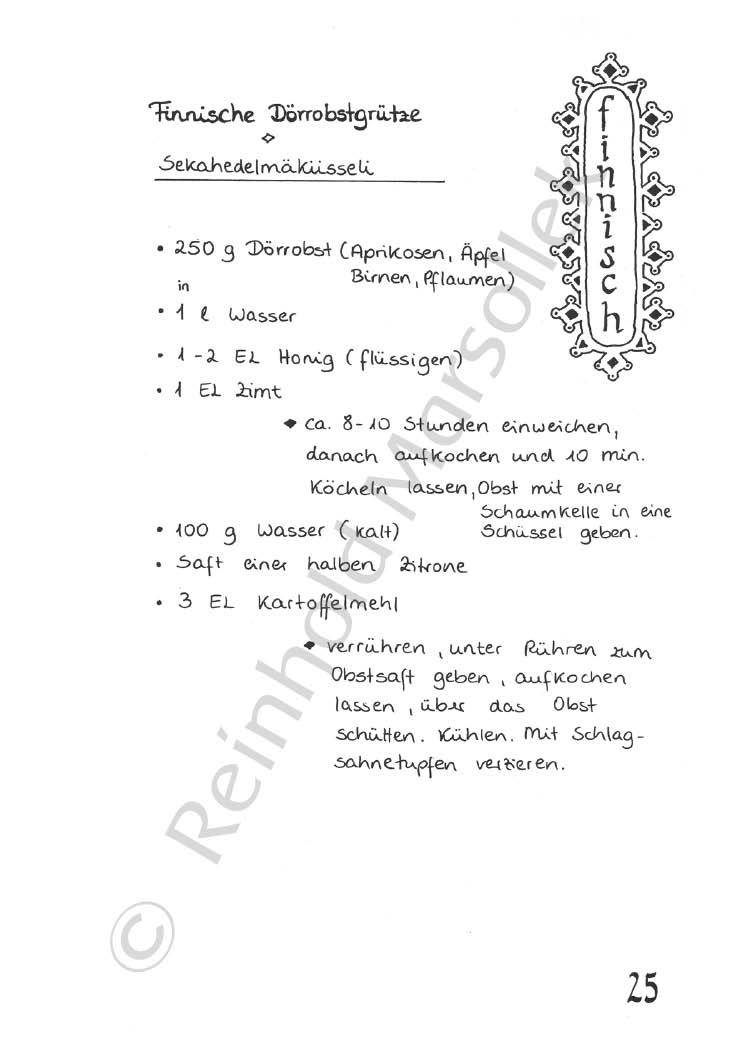 Finnische Dörrobstgrütze
Sekahedelmäkiisseli
finnisch
• 250 g Dörrobst (Aprikosen, Äpfel
Birnen, Pflaumen)
in
• 1 l Wasser
• 1-2 EL Honig (flüssigen)
• 1 EL Zimt
◆ ca. 8-10 Stunden einweichen,
danach aufkochen und 10 min.
Köcheln lassen, Obst mit einer
Schaumkelle in eine
Schüssel geben.
• 100 g Wasser (kalt)
• Saft einer halben Zitrone
• 3 EL Kartoffelmehl
◆ verrühren, unter Rühren zum
Obstsaft geben, aufkochen
lassen, über das Obst
schütten. Kühlen. Mit Schlag-
sahnetupfen verzieren.
© Reinhold Marsollek
25